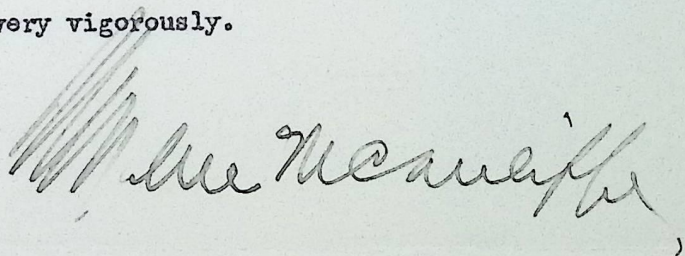 very vigorously.
McAuliffe